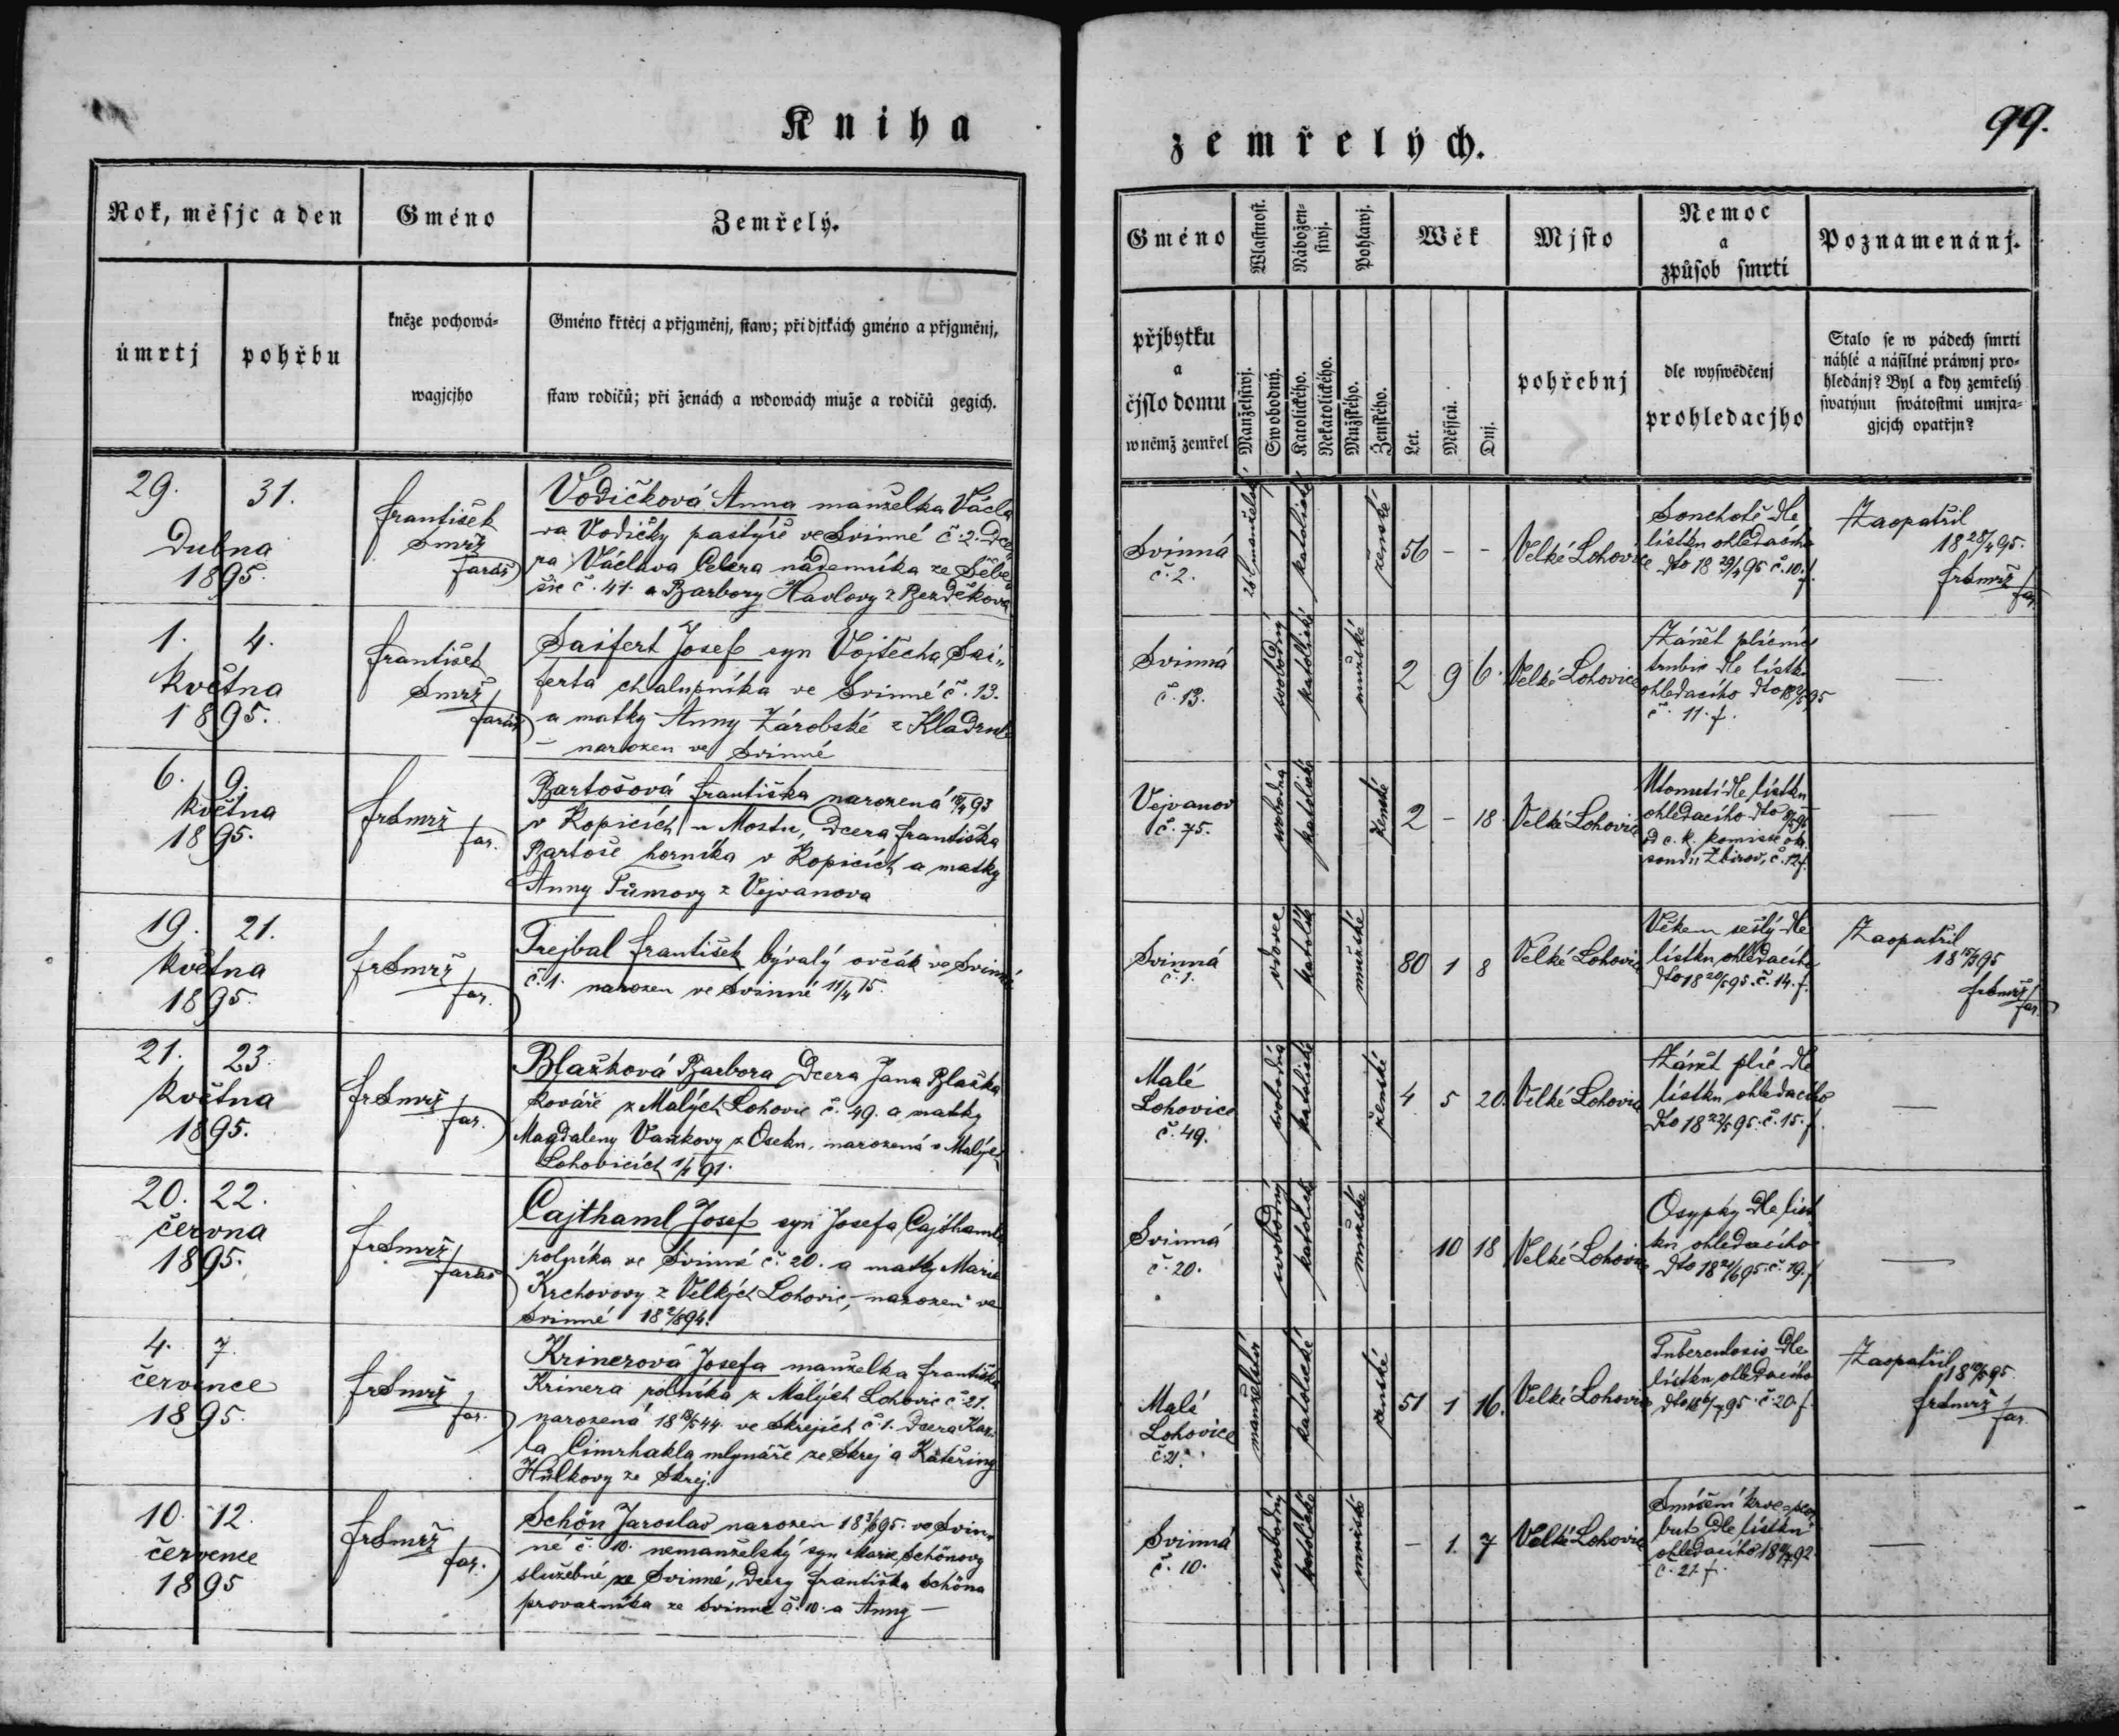 Kniha
Rok, měsjc a den
Gméno
Zemřelý.
úmrtj
pohřbu
kněze pochowá-
wagjcjho
Gméno křtěcj a přjgměnj, staw; při djtkách gméno a přjgměnj,
staw rodičů; při ženách a wdowách muže a rodičů gegich.
29. 31.
Dubna
1895.
František
Smrž
farář
Vodičková Anna manželka Václa
va Vodičky pastýře ve Svinné č. 2. Dce
ra Václava Celera nádenníka ze Sebe
šic č. 41. a Barbory Havlovy z Bezděkova
1. 4.
Května
1895.
František
Smrž
farář
Saifert Josef syn Vojtěcha Sai„
ferta chalupníka ve Svinné č. 13.
a matky Anny Zárobské z Kladrub
– narozen ve Svinné
6. 9.
Května
1895.
FrSmrž
far.
Bartošová Františka narozená 18/4 93
v Kopicích u Mostu, Dcera Františka
Bartoše horníka v Kopicích a matky
Anny Tůmovy z Vejvanova
19. 21.
Května
1895.
FrSmrž
far.
Trejbal František bývalý ovčák ve Svinné
č. 1. narozen ve Svinné 11/4 15.
21. 23.
Května
1895.
FrSmrž
far.
Blažková Barbora Dcera Jana Blažka
kováře z Malých Lohovic č. 49. a matky
Magdaleny Vaňkovy z Oseku, narozená v Malých
Lohovicích 1/1 91.
20. 22.
června
1895.
FrSmrž
farář
Cajthaml Josef syn Josefa Cajthamla
rolníka ve Svinné č. 20. a matky Marie
Krchovovy z Velkých Lohovic, – narozen ve
Svinné 18 2/8 94.
4. 7.
července
1895.
FrSmrž
far.
Krinerová Josefa manželka Františka
Krinera rolníka z Malých Lohovic č. 21.
narozená 18 18/5 44. ve Skrejích č. 1. Dcera Kar
la Cimrhakla mlynáře ze Skrej a Kateřiny
Hůlkovy ze Skrej.
10. 12.
července
1895
FrSmrž
far.
Schön Jaroslav narozen 18 3/6 95. ve Svin„
né č. 10. nemanželský syn Marie Schönovy
služebné ze Svinné, dcery Františka Schöna
provazníka ze Svinné č. 10. a Anny –
zemřelých.
99.
Gméno
Wlastnost.
Nábožen-
stwj.
Pohlawj.
Wěk
Mjsto
Nemoc
a
způsob smrti
Poznamenánj.
přjbytku
a
čjslo domu
w němž zemřel
Manželstwj.
Swobodný.
Katolického.
Nekatolického.
Mužského.
Ženského.
Let.
Měsjců.
Dnj.
pohřebnj
dle wyswědčenj
prohledacjho
Stalo se w pádech smrti
náhlé a násilné práwnj pro-
hledánj? Byl a kdy zemřelý
swatými swátostmi umjra-
gjcjch opatřjn?
Svinná
č. 2.
katolické
ženské
56 – –
Velké Lohovice
Souchotě dle
lístku ohledacího
dto 18 29/4 95 č. 10. f.
Zaopatřil
18 28/4 95.
FrSmrž
far.
Svinná
č. 13.
svobodný
katolické
mužské
2 9 6.
Velké Lohovice
Zánět plicní
trubic dle lístku
ohledacího dto 18 2/5 95
č. 11. f.
—
Vejvanov
č. 75.
svobodná
katolické
ženské
2 – 18.
Velké Lohovice
Utonutí dle lístku
ohledacího
od c. k. komisie ok.
soudu Zbirov, č. 12 f.
—
Svinná
č. 1.
vdovec
katolické
mužské
80 1 8
Velké Lohovice
Věkem sešlý dle
lístku ohledacího
dto 18 20/5 95. č. 14. f.
Zaopatřil
18 15/5 95
FrSmrž
far.
Malé
Lohovice
č. 49.
svobodná
katolické
ženské
4 5 20.
Velké Lohovice
Zánět plic dle
lístku ohledacího
dto 18 22/5 95. č. 15. f.
—
Svinná
č. 20.
svobodný
katolické
mužské
10 18
Velké Lohovice
Osypky dle líst
ku ohledacího
dto 18 21/6 95. č. 19. f
—
Malé
Lohovice
č. 21.
manželství
katolické
ženské
51 1 16.
Velké Lohovice
Tuberculosis dle
lístku ohledacího
dto 18 6/7 95. č. 20. f.
Zaopatřil
FrSmrž
far.
Svinná
č. 10.
svobodný
katolické
mužské
– 1. 7
Velké Lohovice
dle lístku
ohledacího
č. 21 f.
—